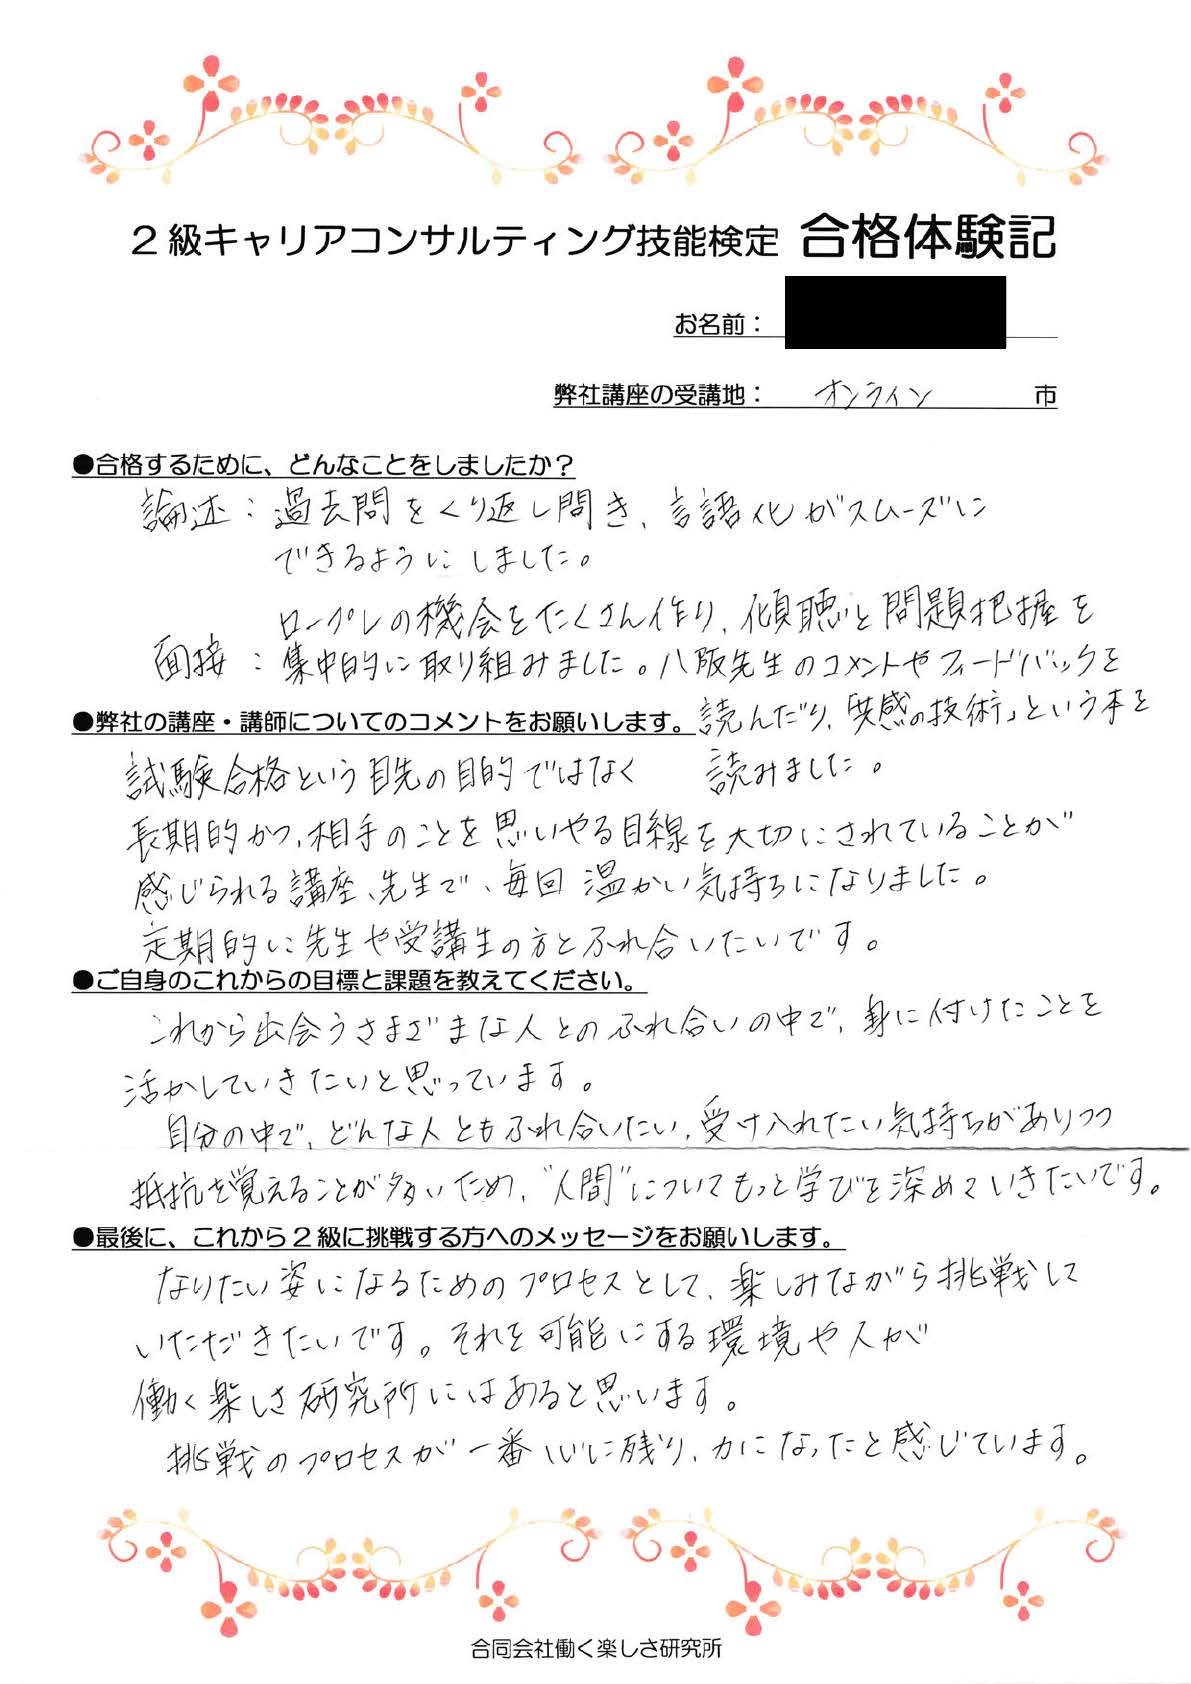 2級キャリアコンサルティング技能検定 合格体験記
お名前：
弊社講座の受講地： オンライン 市
●合格するために、どんなことをしましたか？
論述：過去問をくり返し聞き、言語化がスムーズに
できるようにしました。
ロープレの機会をたくさん作り、傾聴と問題把握を
面接：集中的に取り組みました。八阪先生のコメントやフィードバックを
読んだり、「共感の技術」という本を
読みました。
●弊社の講座・講師についてのコメントをお願いします。
試験合格という目先の目的ではなく
長期的かつ、相手のことを思いやる目線を大切にされていることが
感じられる講座、先生で、毎回温かい気持ちになりました。
定期的に先生や受講生の方とふれ合いたいです。
●ご自身のこれからの目標と課題を教えてください。
これから出会うさまざまな人とのふれ合いの中で、身に付けたことを
活かしていきたいと思っています。
自分の中で、どんな人ともふれ合いたい、受け入れたい気持ちがありつつ
抵抗を覚えることが多いため、“人間”についてもっと学びを深めていきたいです。
●最後に、これから2級に挑戦する方へのメッセージをお願いします。
なりたい姿になるためのプロセスとして、楽しみながら挑戦して
いただきたいです。それを可能にする環境や人が
働く楽しさ研究所にはあると思います。
挑戦のプロセスが一番心に残り、力になったと感じています。
合同会社働く楽しさ研究所